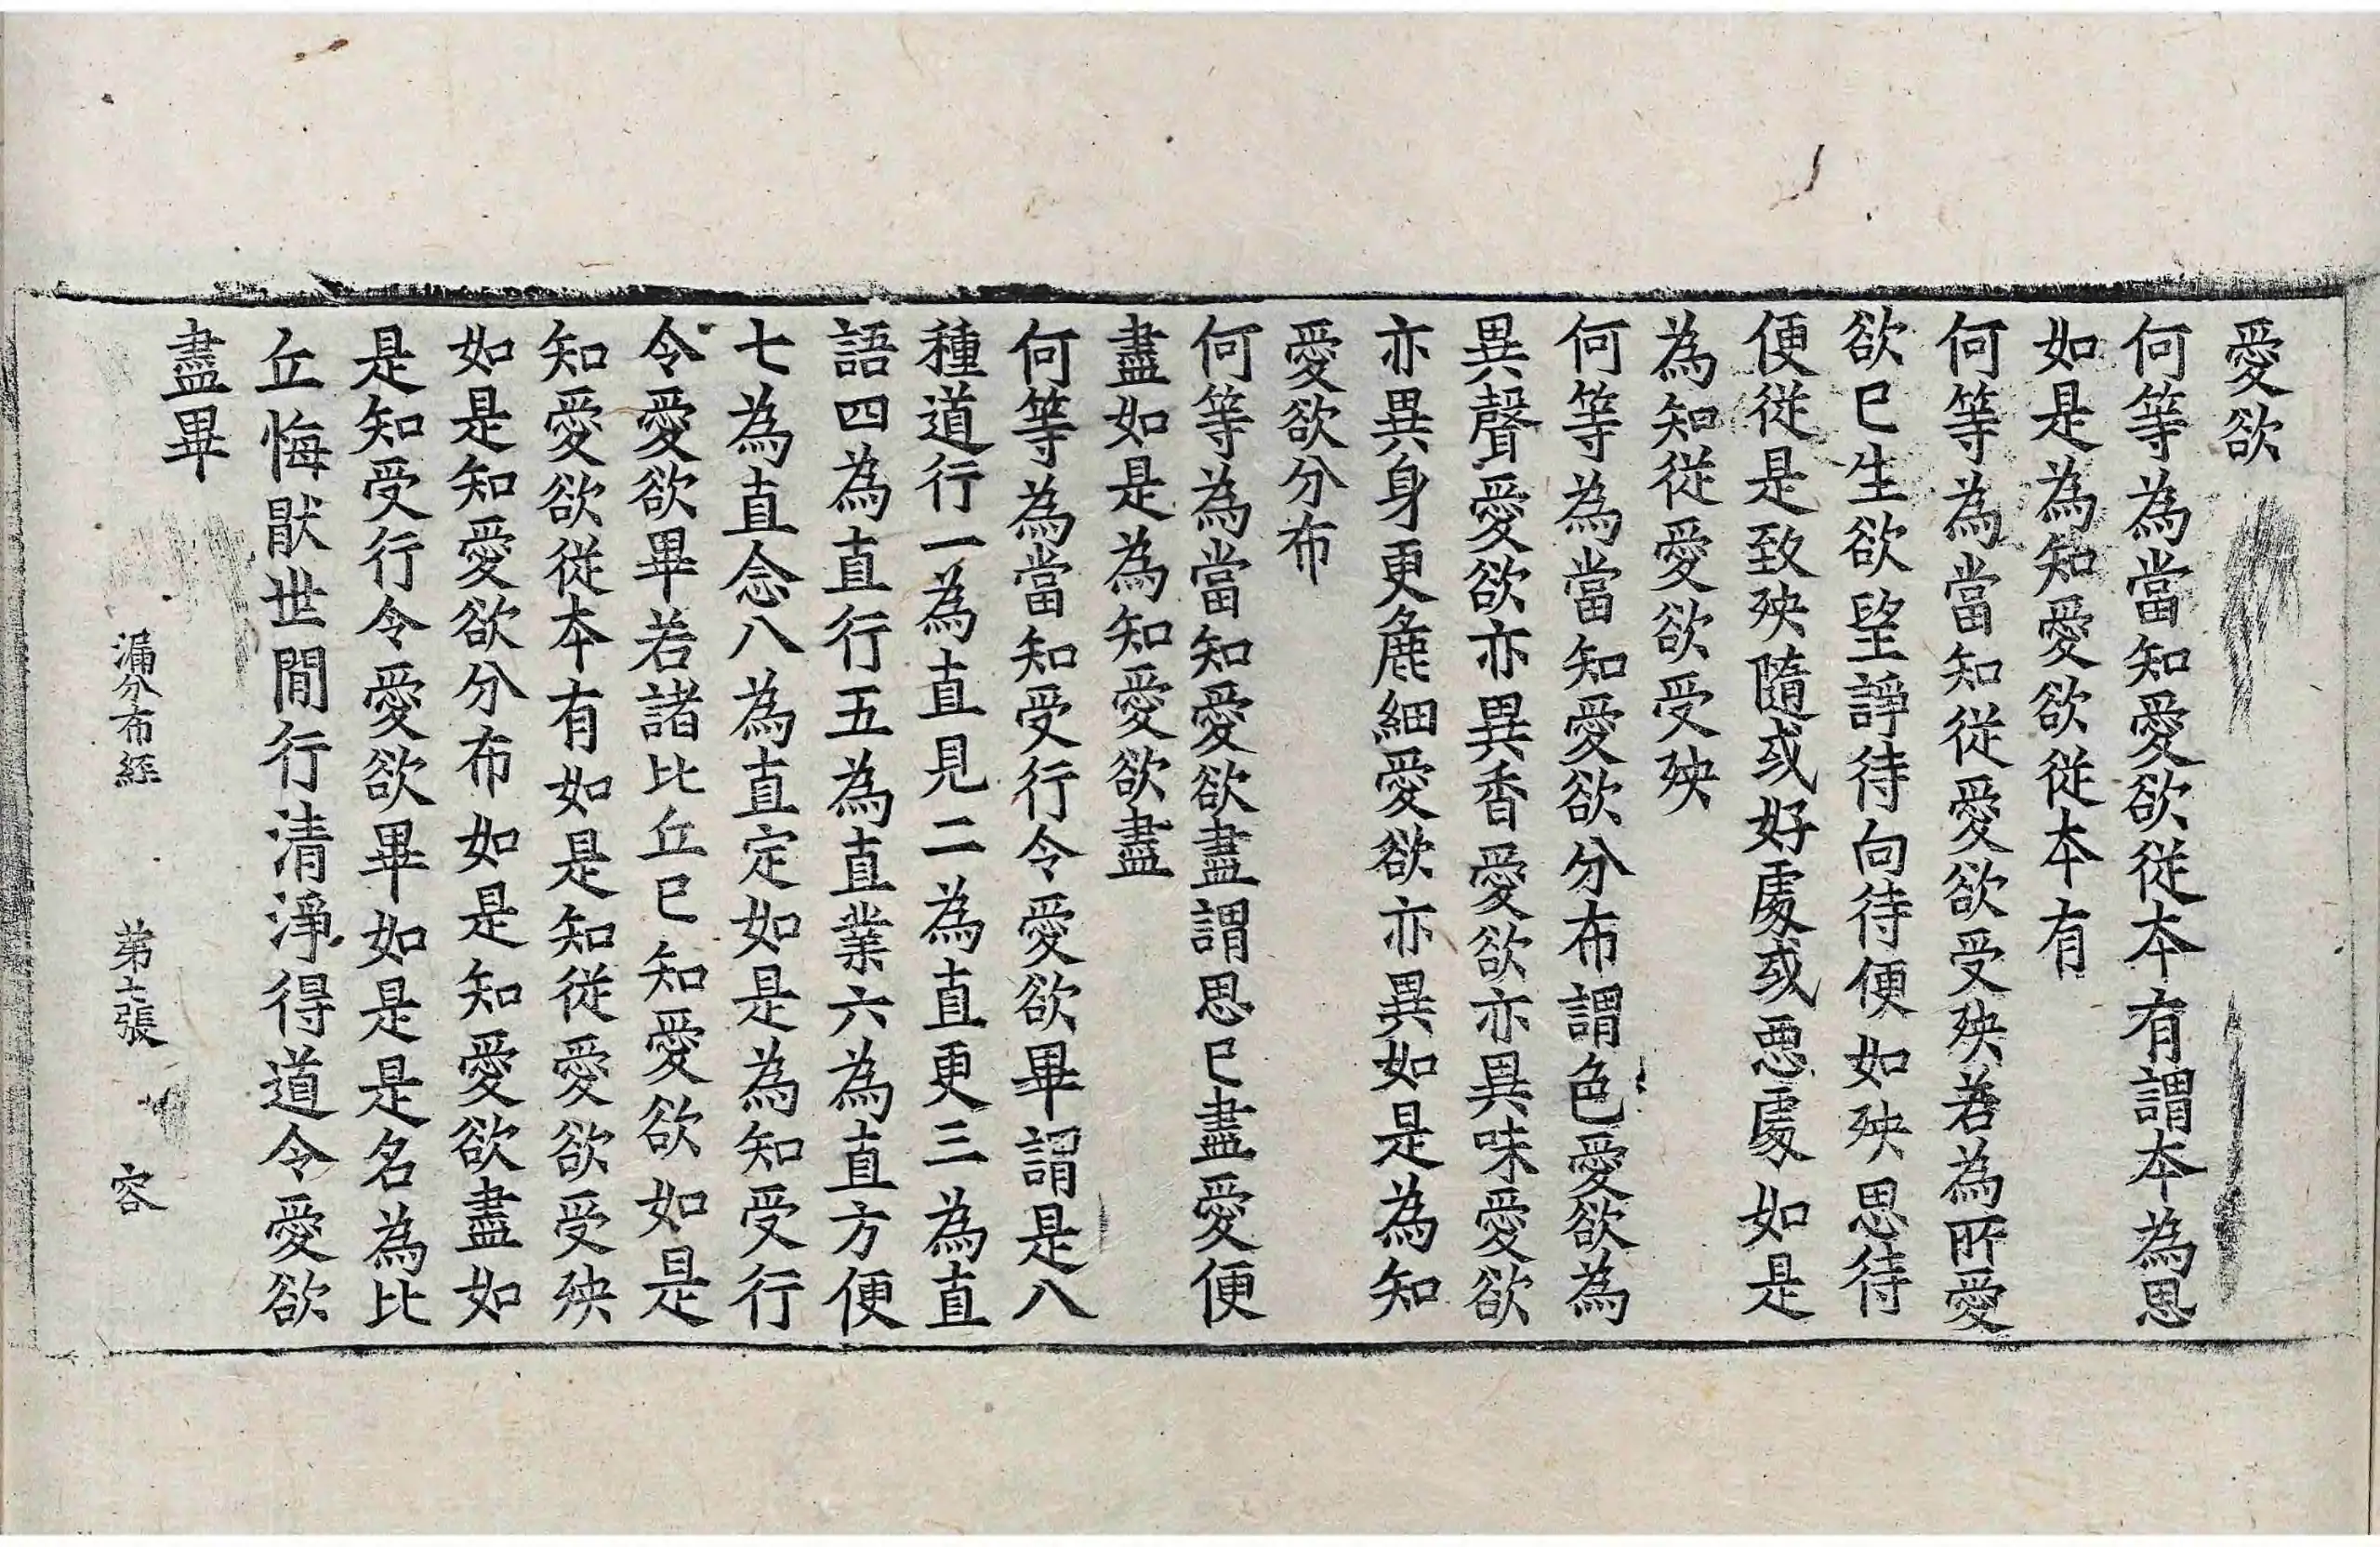 愛欲
何等為當知愛欲從本有謂本為思
如是為知愛欲從本有
何等為當知從愛欲受殃若為所愛
欲已生欲望諍待向待便如殃思待
便從是致殃隨或好處或惡處如是
為知從愛欲受殃
何等為當知愛欲分布謂色愛欲為
異聲愛欲亦異香愛欲亦異味愛欲
亦異身更麁細愛欲亦異如是為知
愛欲分布
何等為當知愛欲盡謂思已盡愛便
盡如是為知愛欲盡
何等為當知受行令愛欲畢謂是八
種道行一為直見二為直更三為直
語四為直行五為直業六為直方便
七為直念八為直定如是為知受行
令愛欲畢若諸比丘已知愛欲如是
知愛欲從本有如是知從愛欲受殃
如是知愛欲分布如是知愛欲盡如
是知受行令愛欲畢如是是名為比
丘悔猒世間行清淨得道令愛欲
盡畢
漏分布經 第七張 容